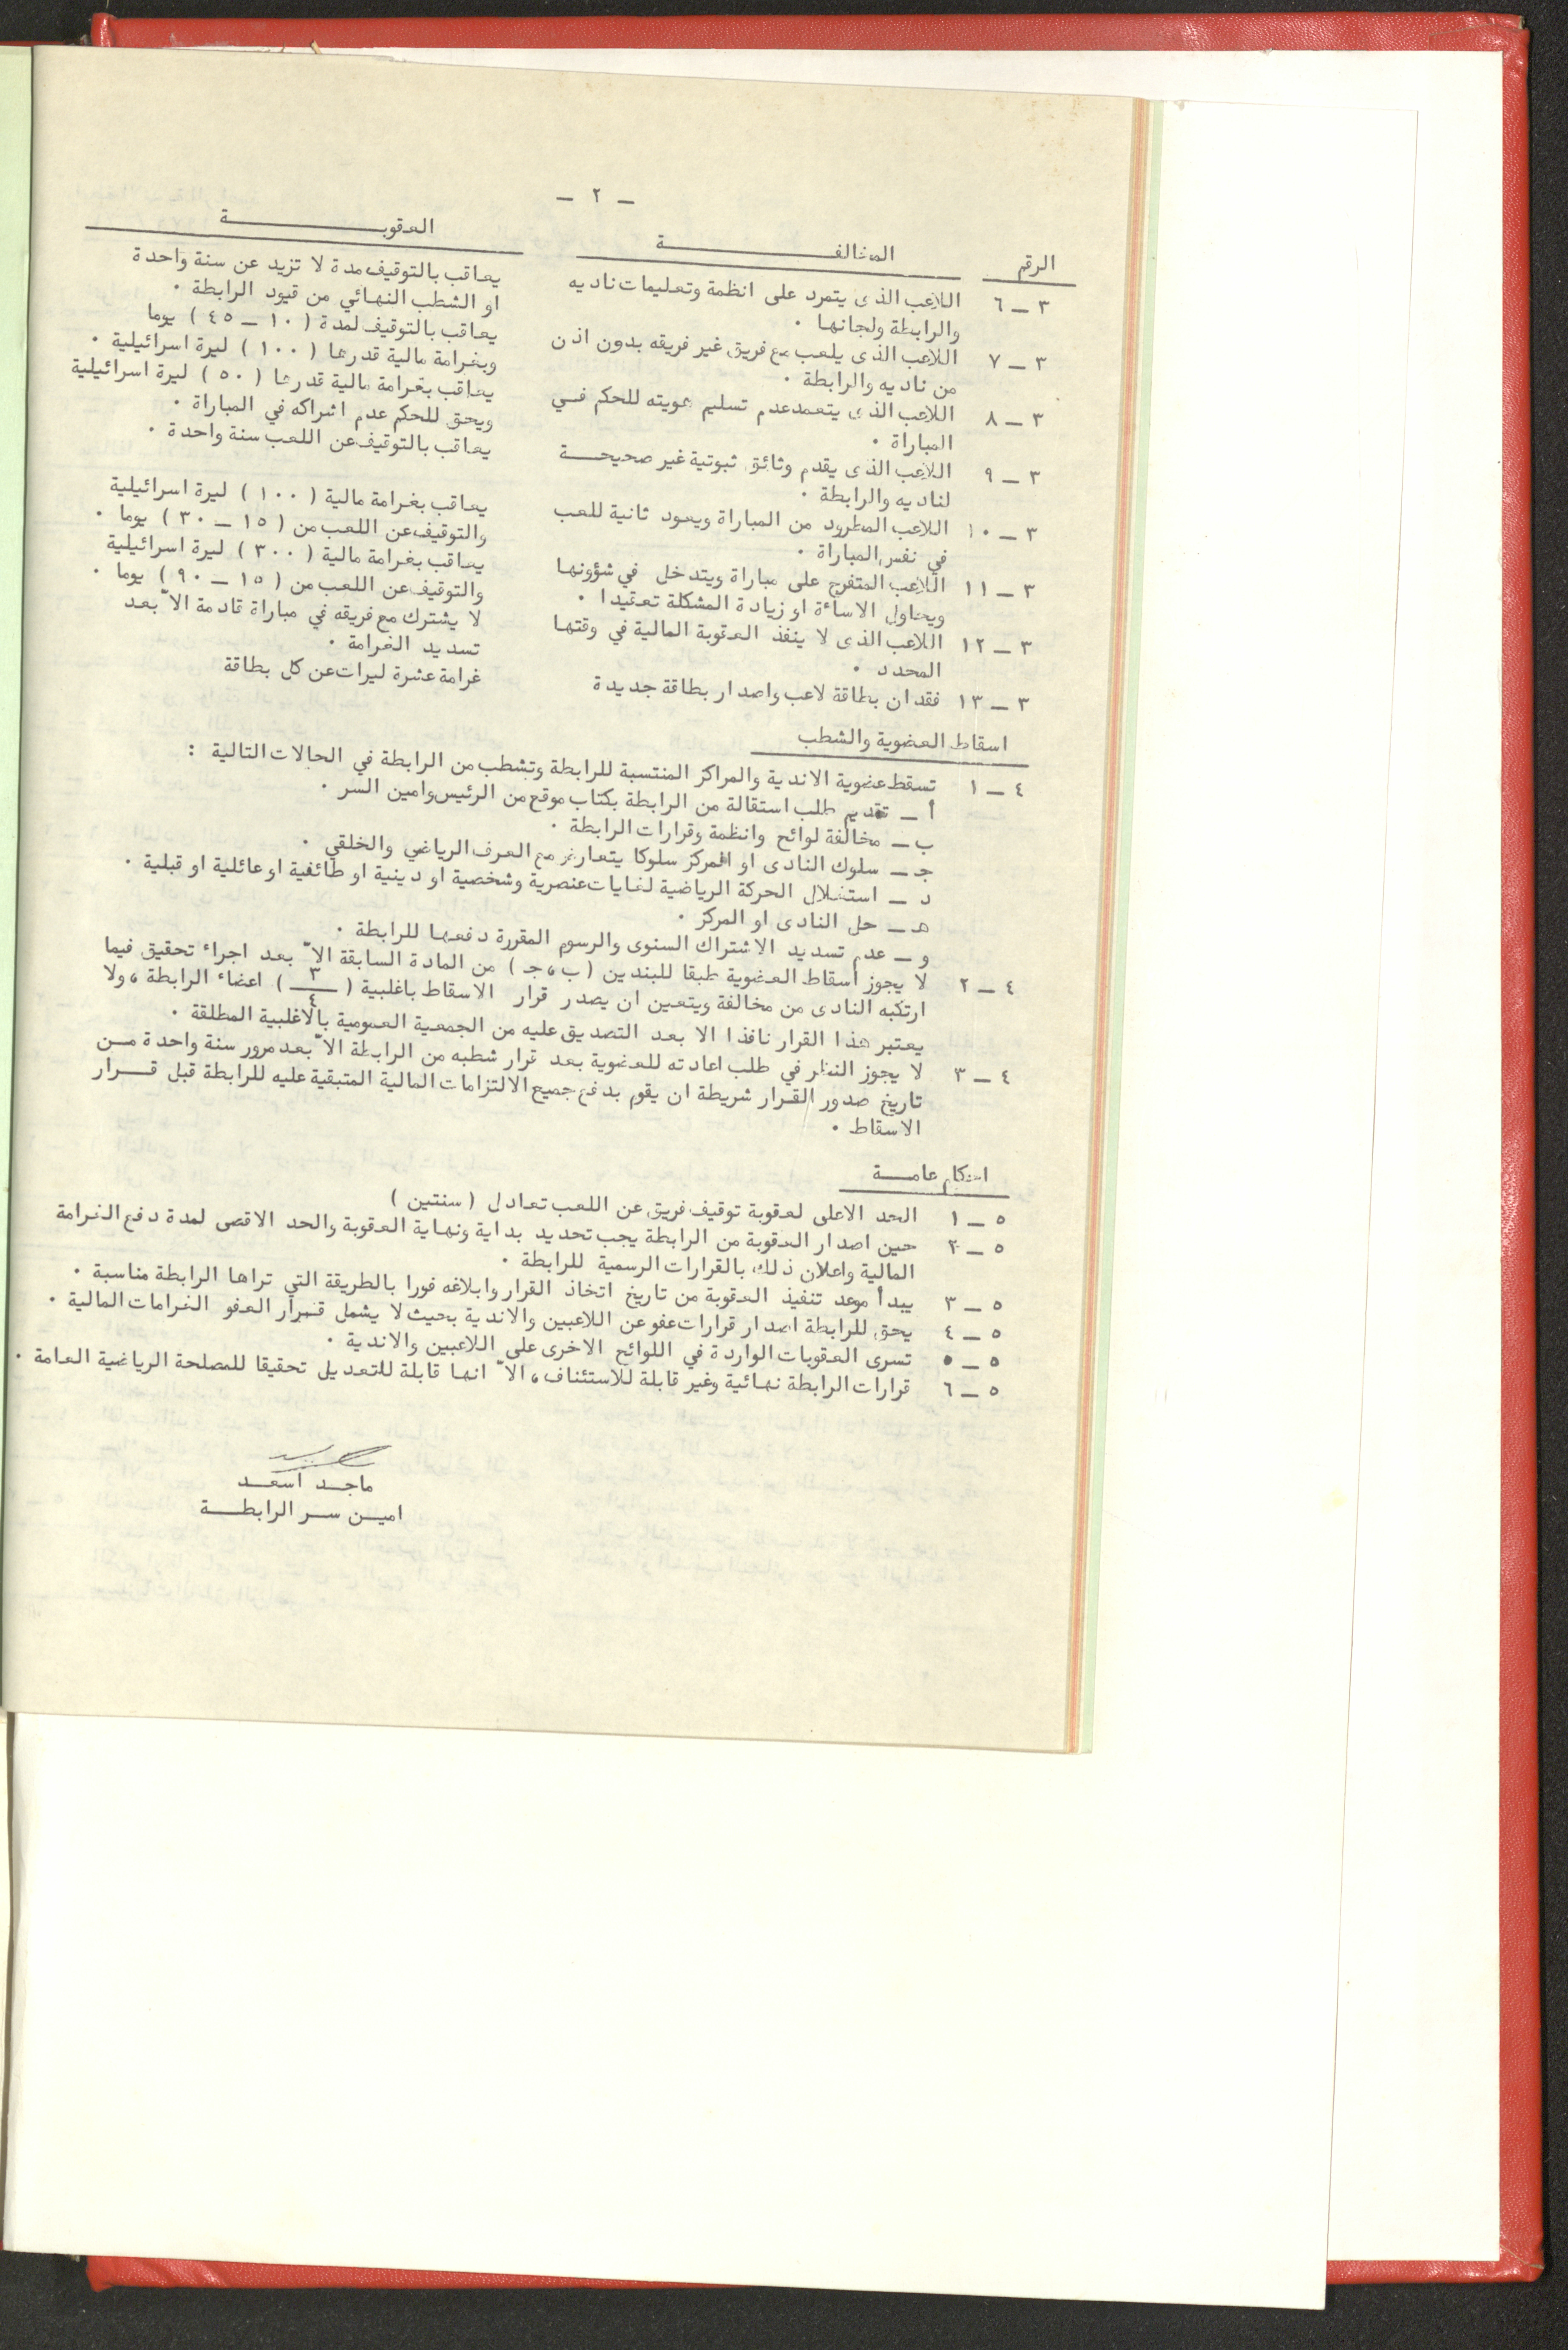 ـ ٢ ـ
الرقم المخالفـــــــــــة العقوبـــــــــــة
٣ ـ ٦ اللاعب الذى يتمرد على انظمة وتعليمات ناديه
والرابطة ولجانها ٠
يعاقب بالتوقيف مدة لا تزيد عن سنة واحدة
او الشطب النهائي من قيود الرابطة ٠
٣ ـ ٧ اللاعب الذى يلعب مع فريق غير فريقه بدون اذن
من ناديه والرابطة ٠
يعاقب بالتوقيف لمدة ( ١٠ ـ ٤٥ ) يوما
وبغرامة مالية قدرها ( ١٠٠ ) ليرة اسرائيلية ٠
٣ ـ ٨ اللاعب الذى يتعمد عدم تسليم هويته للحكم فــي
المباراة ٠
يعاقب بغرامة مالية قدرها ( ٥٠ ) ليرة اسرائيلية
ويحق للحكم عدم اشراكه في المباراة ٠
٣ ـ ٩ اللاعب الذى يقدم وثائق ثبوتية غير صحيحــــة
لناديه والرابطة ٠
يعاقب بالتوقيف عن اللعب سنة واحدة ٠
٣ ـ ١٠ اللاعب المطرود من المباراة ويعود ثانية للعب
في نفس المباراة ٠
يعاقب بغرامة مالية ( ١٠٠ ) ليرة اسرائيلية
والتوقيف عن اللعب من ( ١٥ ـ ٣٠ ) يوما ٠
٣ ـ ١١ اللاعب المتفرج على مباراة ويتدخل في شؤونها
ويحاول الاساءة او زيادة المشكلة تعقيدا ٠
يعاقب بغرامة مالية ( ٣٠٠ ) ليرة اسرائيلية
والتوقيف عن اللعب من ( ١٥ ـ ٩٠ ) يوما ٠
٣ ـ ١٢ اللاعب الذى لا ينفذ العقوبة المالية في وقتها
المحدد ٠
لا يشترك مع فريقه في مباراة قادمة الاّ بعد
تسديد الغرامة ٠
٣ ـ ١٣ فقدان بطاقة لاعب واصدار بطاقة جديدة
غرامة عشرة ليرات عن كل بطاقة
اسقاط العضوية والشطب
٤ ـ ١ تسقط عضوية الاندية والمراكز المنتسبة للرابطة وتشطب من الرابطة في الحالات التالية :
أ ـ تقديم طلب استقالة من الرابطة بكتاب موقع من الرئيس وامين السر ٠
ب ـ مخالفة لوائح وانظمة وقرارات الرابطة ٠
جـ ـ سلوك النادى او المركز سلوكا يتعارض مع العرف الرياضي والخلقي ٠
د ـ استغلال الحركة الرياضية لغايات عنصرية وشخصية او دينية او طائفية او عائلية او قبلية ٠
هـ ـ حل النادى او المركز ٠
و ـ عدم تسديد الاشتراك السنوى والرسوم المقررة دفعها للرابطة ٠
٤ ـ ٢ لا يجوز اسقاط العضوية طبقا للبندين ( ب ، جـ ) من المادة السابقة الاّ بعد اجراء تحقيق فيما
ارتكبه النادى من مخالفة ويتعين ان يصدر قرار الاسقاط باغلبية ( ٣/٤ ) اعضاء الرابطة ، ولا
يعتبر هذا القرار نافذا الا بعد التصديق عليه من الجمعية العمومية بالاغلبية المطلقة ٠
٤ ـ ٣ لا يجوز النظر في طلب اعادته للعضوية بعد قرار شطبه من الرابطة الاّ بعد مرور سنة واحدة مــن
تاريخ صدور القرار شريطة ان يقوم بدفع جميع الالتزامات المالية المتبقية عليه للرابطة قبل قــرار
الاسقاط ٠
احكام عامــــة
٥ ـ ١ الحد الاعلى لعقوبة توقيف فريق عن اللعب تعادل ( سنتين )
٥ ـ ٢ حين اصدار العقوبة من الرابطة يجب تحديد بداية ونهاية العقوبة والحد الاقصى لمدة دفع الغرامة
المالية واعلان ذلك بالقرارات الرسمية للرابطة ٠
٥ ـ ٣ يبدأ موعد تنفيذ العقوبة من تاريخ اتخاذ القرار وابلاغه فورا بالطريقة التي تراها الرابطة مناسبة ٠
٥ ـ ٤ يحق للرابطة اصدار قرارات عفو عن اللاعبين والاندية بحيث لا يشمل قرار العفو الغرامات المالية ٠
٥ ـ ٥ تسرى العقوبات الواردة في اللوائح الاخرى على اللاعبين والاندية ٠
٥ ـ ٦ قرارات الرابطة نهائية وغير قابلة للاستئناف ، الاّ انها قابلة للتعديل تحقيقا للمصلحة الرياضية العامة ٠
ماجــد اسعــد
اميــن ســر الرابطــــة